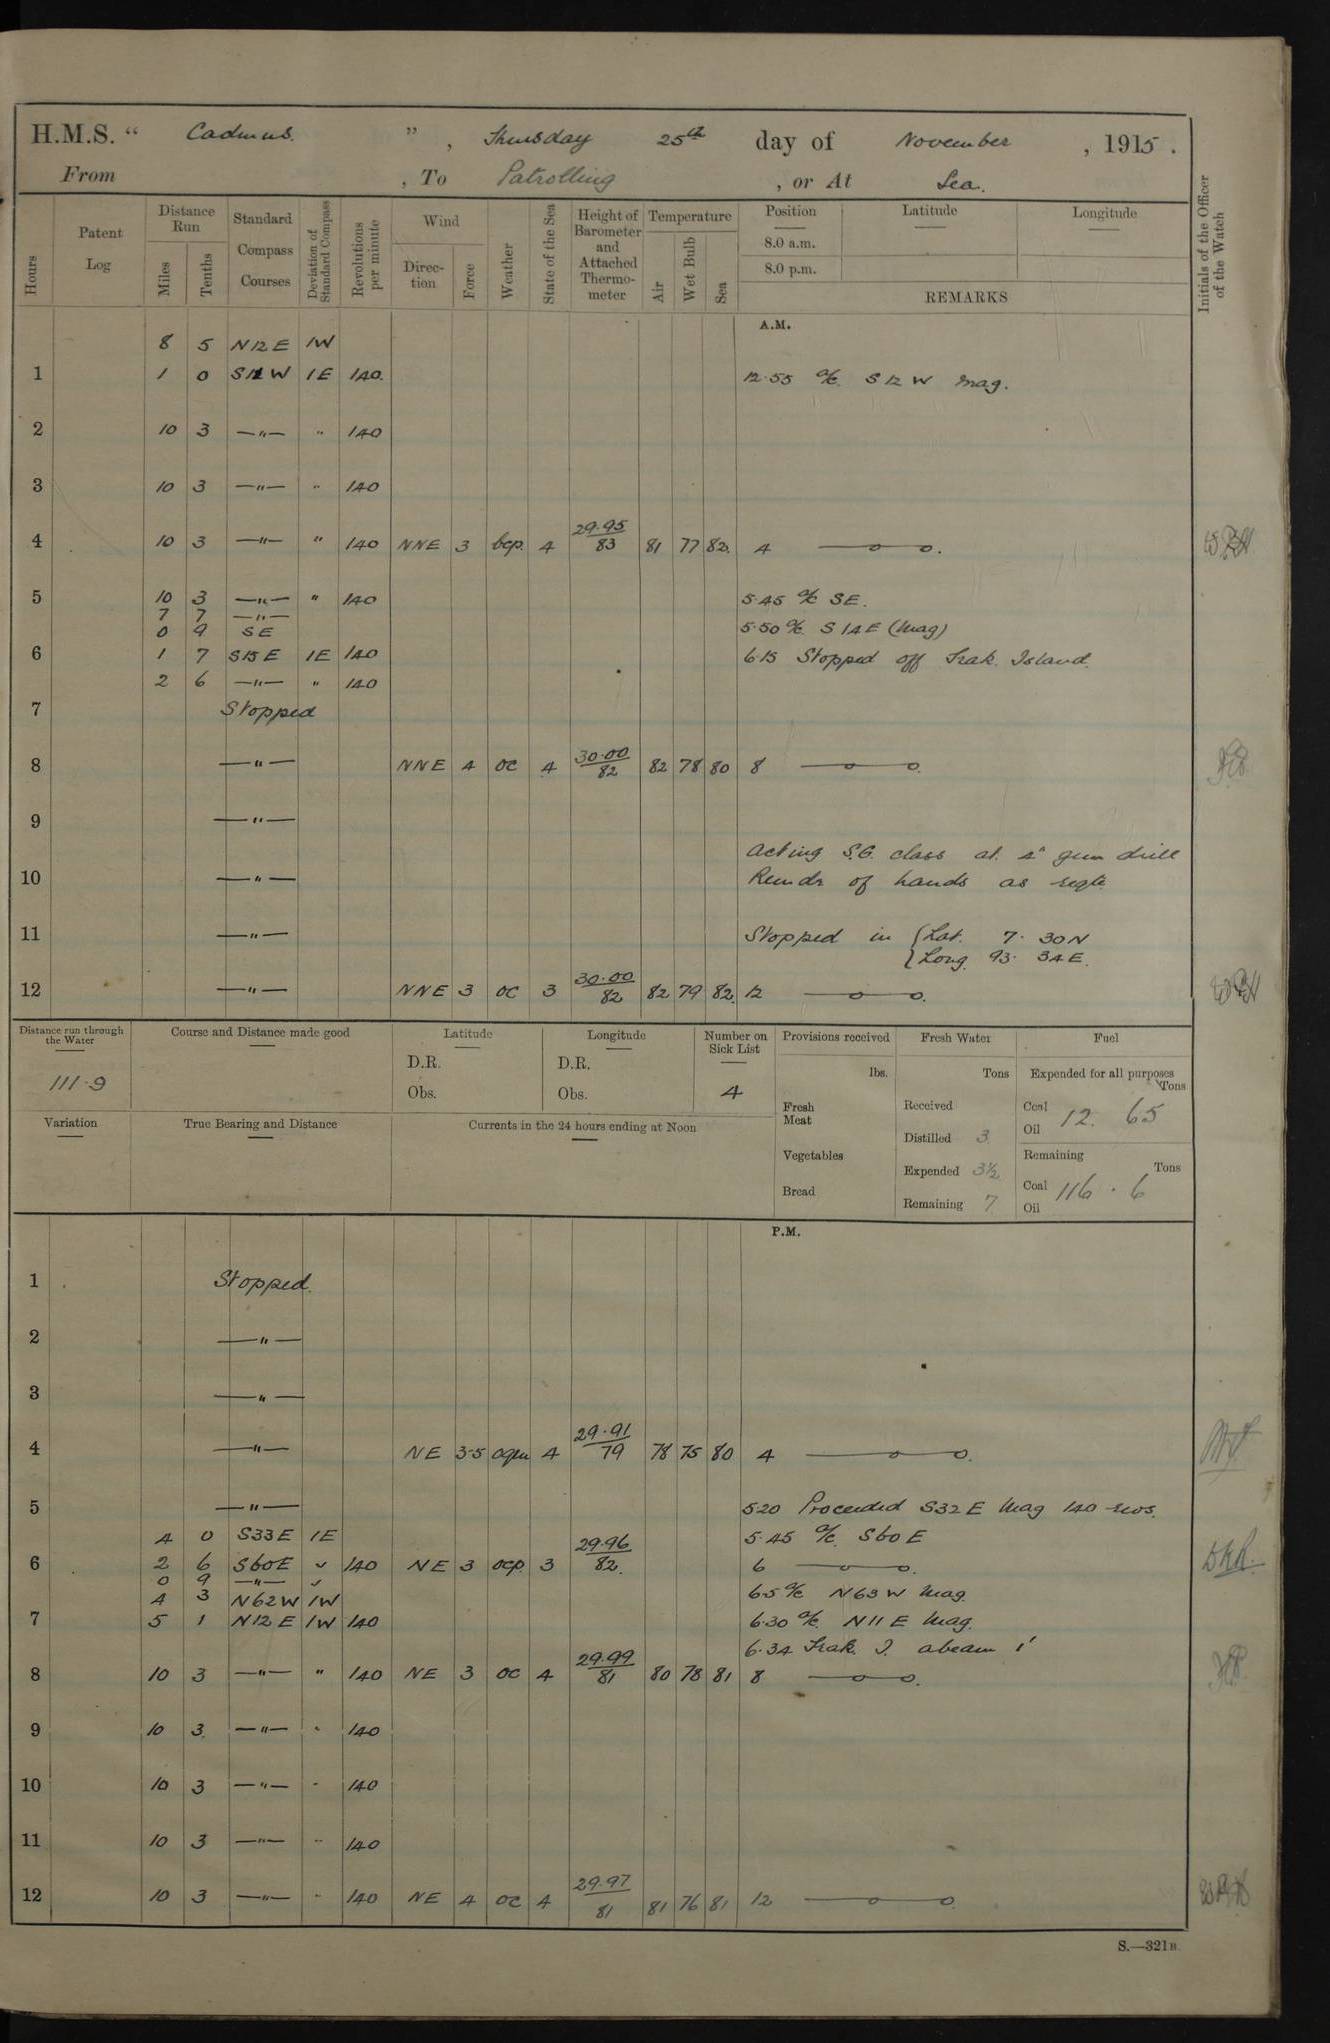 H.M.S. “ Cadmus. ” , Thursday 25th day of November , 1915 .
From , To Patrolling , or At Sea.
Hours
Patent Log
Distance Run
Miles
Tenths
Standard Compass Courses
Deviation of Standard Compass
Revolutions per minute
Wind
Direction
Force
Weather
State of the Sea
Height of Barometer and Attached Thermometer
Temperature
Air
Wet Bulb
Sea
Position
8.0 a.m.
8.0 p.m.
Latitude
Longitude
REMARKS
Initials of the Officer of the Watch
A.M.
8 5 N12E 1W
1 1 0 S12W 1E 140. 12.55 a/c. S12W mag.
2 10 3 —"— " 140
3 10 3 —"— " 140
4 10 3 —"— " 140 NNE 3 bcp. 4 29.95/83 81 77 82. 4
5 10 3 —"— " 140 5.45 a/c SE.
7 7 —"—
0 9 SE 5.50 a/c. S14E (Mag)
6 1 7 S15E 1E 140 6.15 Stopped off Island.
2 6 —"— " 140
7 Stopped
8 —"— NNE 4 oc 4 30.00/82 82 78 80 8
9 —"—
Acting S.G. class at 4" gun drill
10 —"— Remdr of hands as reqte
11 —"— Stopped in { Lat. 7. 30N
{ Long. 93. 34E.
12 —"— NNE 3 oc 3 30.00/82 82 79 82. 12
Distance run through the Water
111.9
Course and Distance made good
Latitude
D.R.
Obs.
Longitude
D.R.
Obs.
Number on Sick List
4
Provisions received
lbs.
Fresh Meat
Vegetables
Bread
Fresh Water
Tons
Received
Distilled 3
Expended 3½
Remaining 7
Fuel
Expended for all purposes
Tons
Coal
Oil
12. 65
Remaining
Tons
Coal 116 . 6
Oil
Variation
True Bearing and Distance
Currents in the 24 hours ending at Noon
P.M.
1 Stopped.
2 —"—
3 —"—
4 —"— NE 3-5 oqm 4 29.91/79 78 75 80 4
5 —"— 5.20 Proceeded S32E Mag 140 revs.
4 0 S33E 1E 5.45 a/c. S60E
6 2 6 S60E " 140 NE 3 ocp 3 29.96/82. 6
0 9 —"— "
4 3 N62W 1W 6.5 a/c N63W Mag.
7 5 1 N12E 1W 140 6.30 a/c. N11E Mag.
6.34 I. abeam 1'
8 10 3 —"— " 140 NE 3 oc 4 29.99/81 80 78 81 8
9 10 3. —"— " 140
10 10 3 —"— " 140
11 10 3 —"— " 140
12 10 3 —"— " 140 NE 4 oc 4 29.97/81 81 76 81 12
S.—321B.